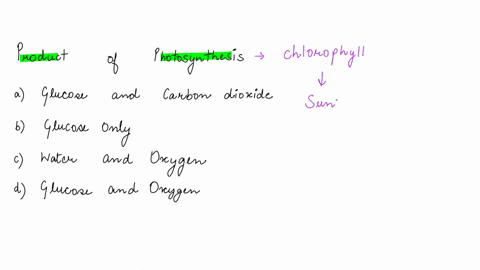 Product of Photosynthesis → chlorophyll
↓
a) Glucose and Carbon dioxide
Sun
b) Glucose Only
c) Water and Oxygen
d) Glucose and Oxygen